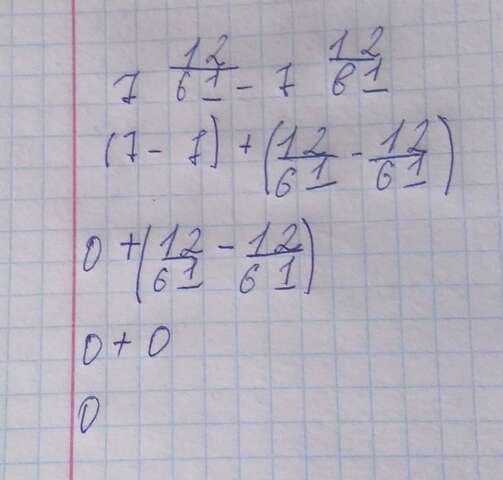 7 12/61 - 7 12/61
(7 - 7) + (12/61 - 12/61)
0 + (12/61 - 12/61)
0 + 0
0